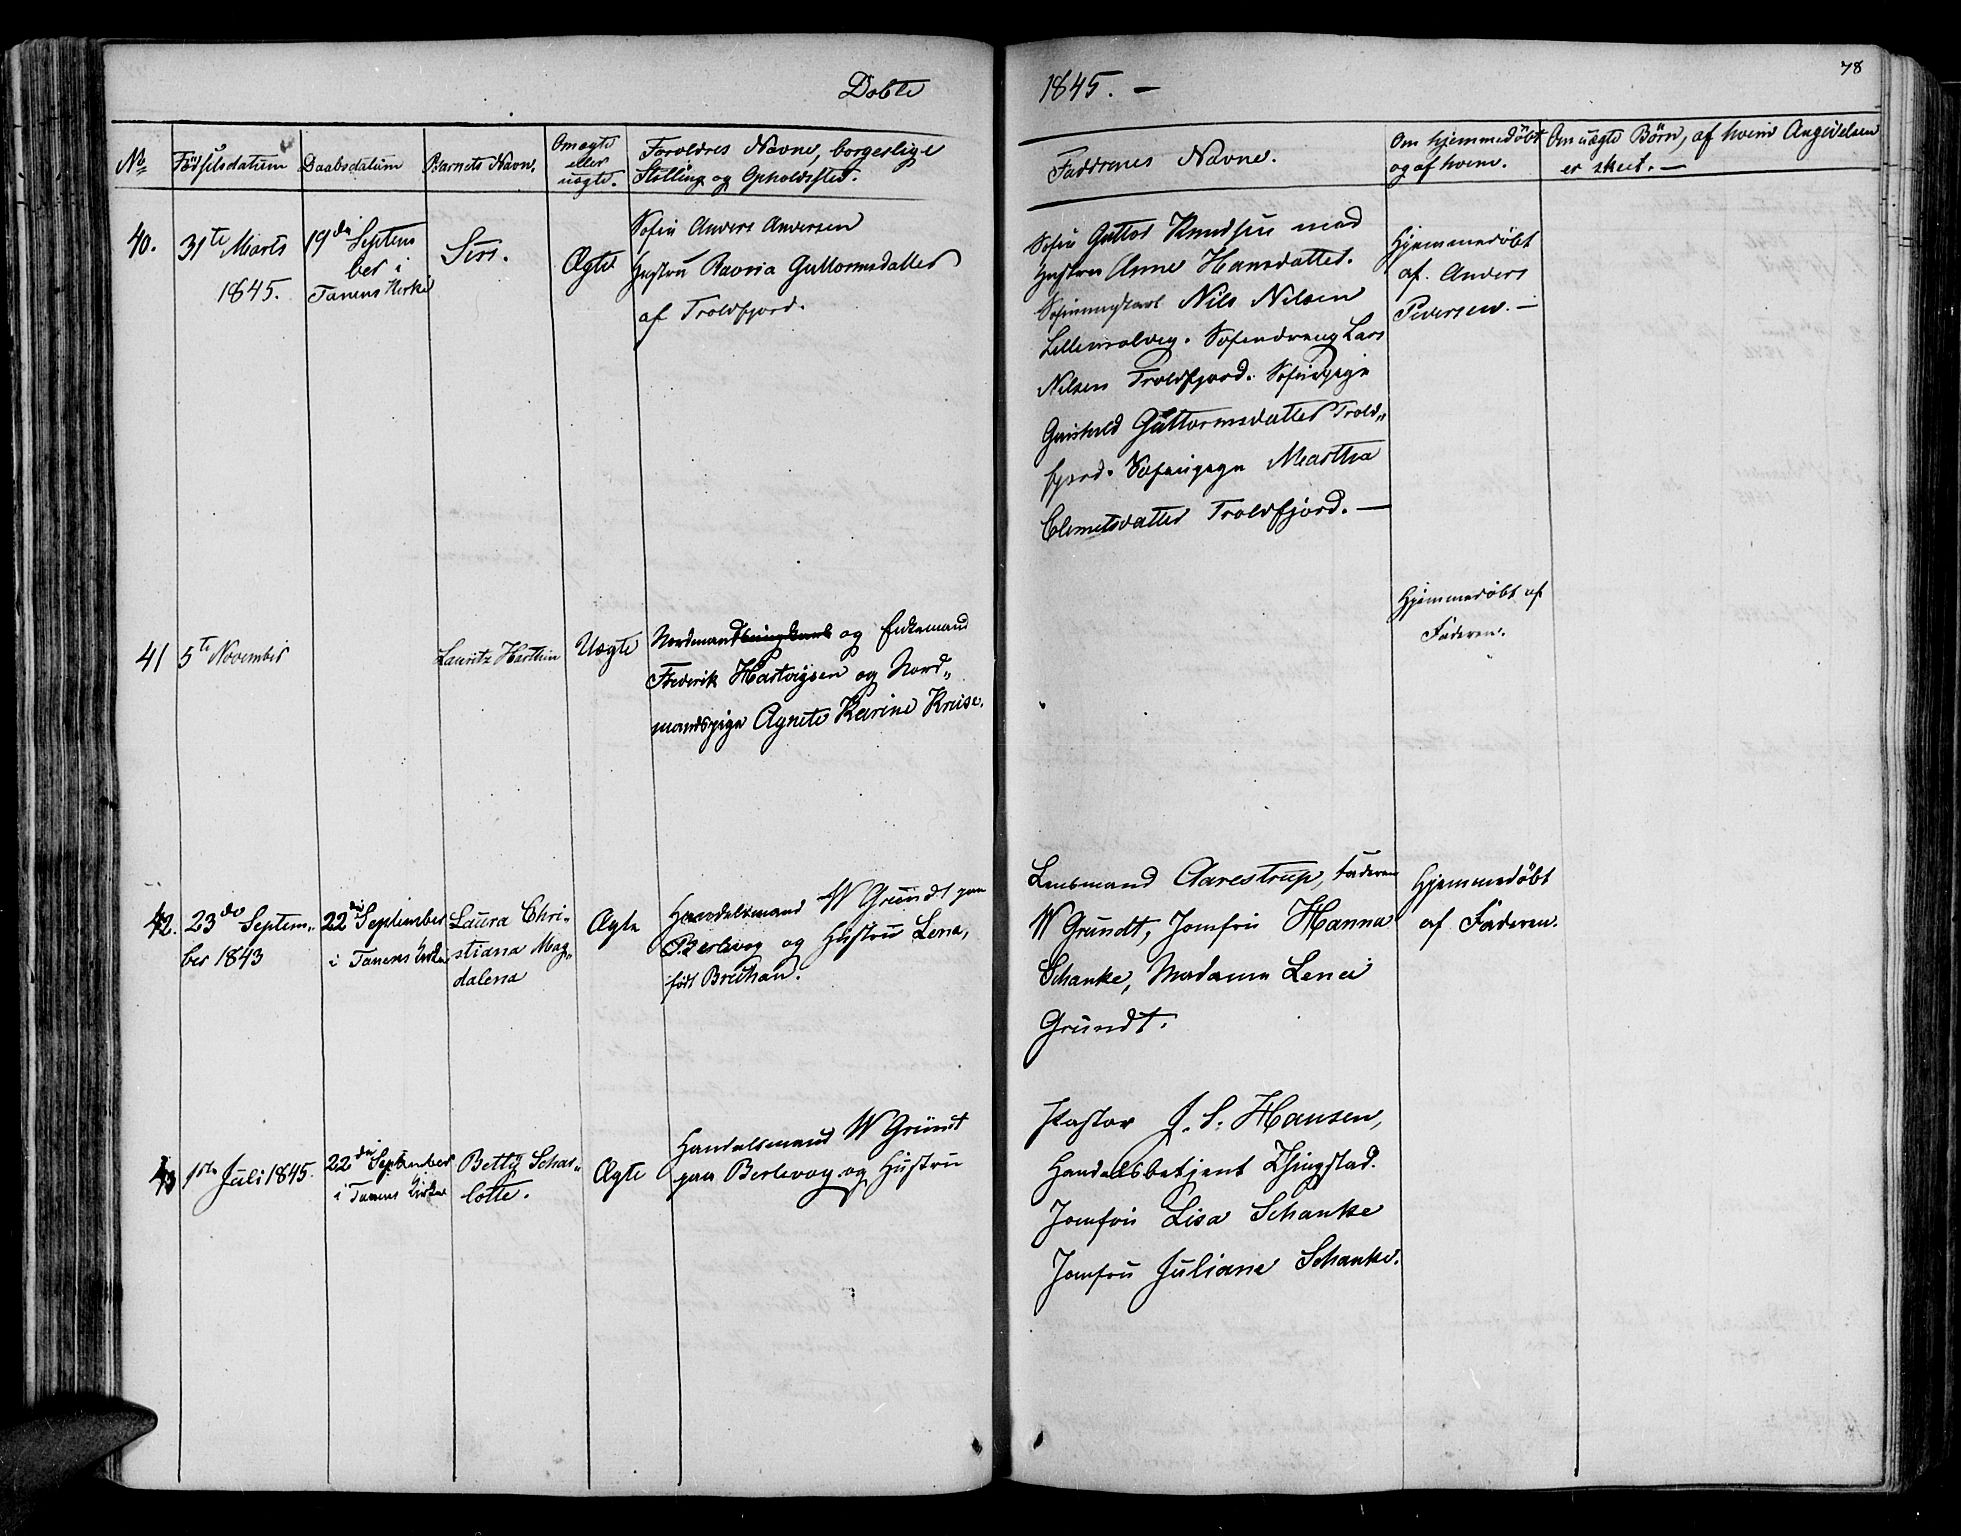 Døbte
1845. —
78
No
Fødselsdatum
Daabsdatum
Barnets Navn.
Om ægte
eller
uægte.
Forældres Navne, borgerlige
Stilling og Opholdssted.
Faddrenes Navne.
Om hjemmedøbt
og af hvem.
Om uægte Børn, af hvem Angivelsen
er skeet. —
40.
31te Marts
1845.
19de Septem
ber i
Tanens Kirke
Siri.
Ægte
Søfin Anders Andersen
Hustru Ravna Guttormsdatter
af Troldfjord.
Søfin Guttor Knudsen med
Hustru Anne Hansdatter.
Nils Nilsen
Søfindreng Lars
Nilsen Troldfjord. Søfinpige
Gunhild Guttormsdatter Trold„
fjord. Søfinpige Martha
Clemetsdatter Troldfjord. —
Hjemmedøbt
af Anders
Pedersen. —
41
5te November
Lauritz Harthin
Uægte
Nordmand og Enkemand
Frederik Hartvigsen og Nord„
mandspige Agnete Karine Kruse.
Hjemmedøbt af
Faderen.
42.
23de Septem„
ber 1843
22de September
i Tanens Kirke
Laura Chri„
stiana Mag„
dalena
Ægte
Handelsmand W Grundt paa
Berlevog og Hustru Lena,
født
Lensmand Aarestrup, Faderen
W Grundt, Jomfru Hanna
Schanke, Madame Lena
Grundt.
Hjemmedøbt
af Faderen.
43
1ste Juli 1845.
22de September
i Tanens Kirke
Betty Schar„
lotte.
Ægte
Handelsmand W Grundt
paa Berlevog og Hustru
Pastor J. S. Hansen,
Handelsbetjent
Jomfru Lisa Schanke
Jomfru Juliane Schanke.